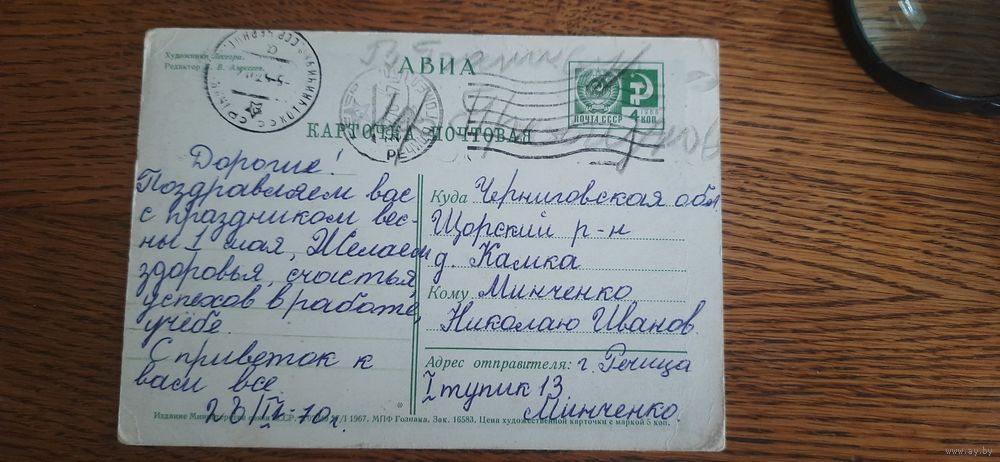 Художник
Редактор
АВИА
КАРТОЧКА ПОЧТОВАЯ
ПОЧТА СССР
4 КОП.
Дорогие!
Поздравляем вас
с праздником вес-
ны 1 мая, Желаем
здоровья, счастья,
успехов в работе,
учёбе.
С приветок к
вам все.
28/IV-70г.
Куда Черниговская обл
Щорский р-н
д. Камка
Кому Минченко
Николаю Иванов.
Адрес отправителя: г. Речица
I тупик 13
Минченко.
Издание Министерства связи СССР. 1967. МПФ Гознака. Зак. 16583. Цена художественной карточки с маркой 5 коп.
www.ay.by